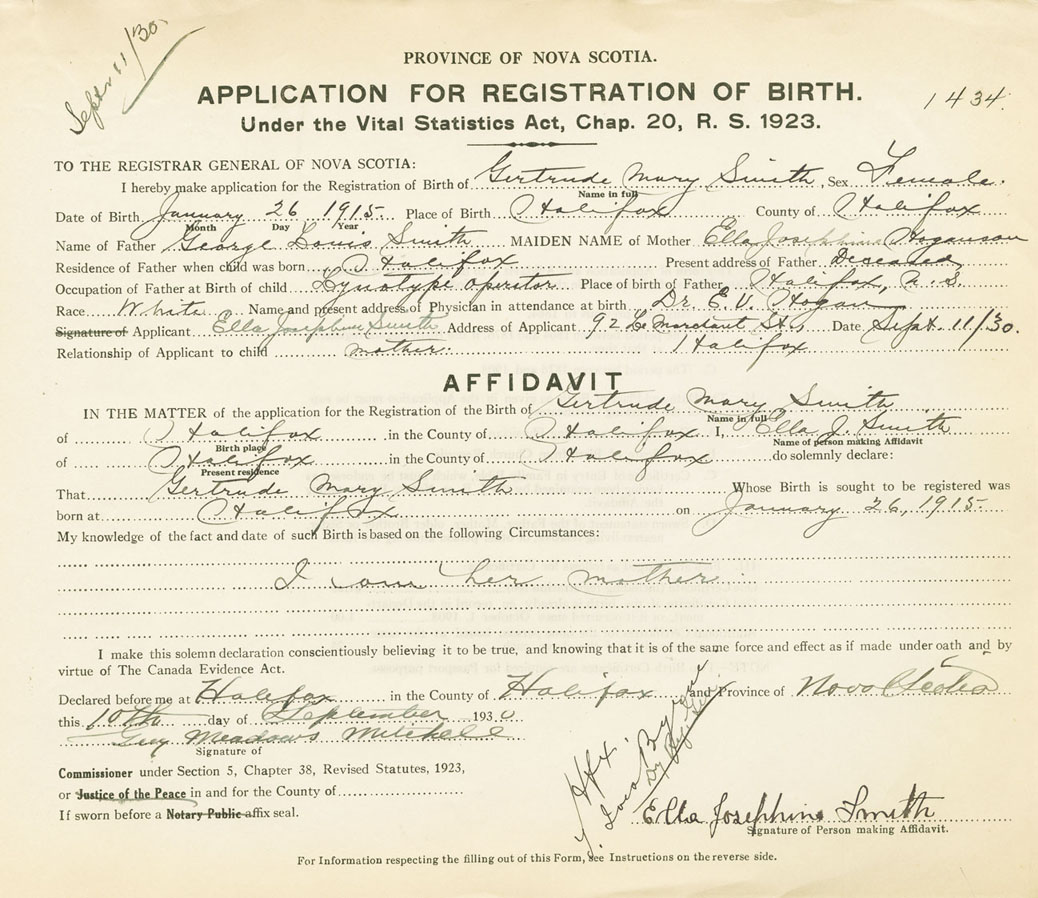 Sept 11/30
PROVINCE OF NOVA SCOTIA.
APPLICATION FOR REGISTRATION OF BIRTH.
1434
Under the Vital Statistics Act, Chap. 20, R. S. 1923.
TO THE REGISTRAR GENERAL OF NOVA SCOTIA:
I hereby make application for the Registration of Birth of Gertrude Mary Smith, Sex Female.
Name in full
Date of Birth January 26 1915 Place of Birth Halifax County of Halifax
Month Day Year
Name of Father George Louis Smith MAIDEN NAME of Mother Ella Josephine Hoganson
Residence of Father when child was born Halifax Present address of Father Deceased
Occupation of Father at Birth of child Lynotype Operator Place of birth of Father Halifax, N. S.
Race White Name and present address of Physician in attendance at birth Dr. E. V. Hogan
Signature of Applicant Ella Josephine Smith Address of Applicant 92 Le Marchant St., Date Sept. 11/30.
Relationship of Applicant to child mother. Halifax
AFFIDAVIT
IN THE MATTER of the application for the Registration of the Birth of Gertrude Mary Smith
Name in full
of Halifax in the County of Halifax I, Ella J. Smith
Birth place Name of person making Affidavit
of Halifax in the County of Halifax do solemnly declare:
Present residence
That Gertrude Mary Smith Whose Birth is sought to be registered was
born at Halifax on January 26, 1915
My knowledge of the fact and date of such Birth is based on the following Circumstances:
I am her mother
I make this solemn declaration conscientiously believing it to be true, and knowing that it is of the same force and effect as if made under oath and by
virtue of The Canada Evidence Act.
Declared before me at Halifax in the County of Halifax and Province of Nova Scotia
this 10th day of September 1930
Guy Meadows Mitchell
Signature of
Commissioner under Section 5, Chapter 38, Revised Statutes, 1923,
or Justice of the Peace in and for the County of
If sworn before a Notary Public affix seal.
Hfx.
Ella Josephine Smith
Signature of Person making Affidavit.
For Information respecting the filling out of this Form, see Instructions on the reverse side.